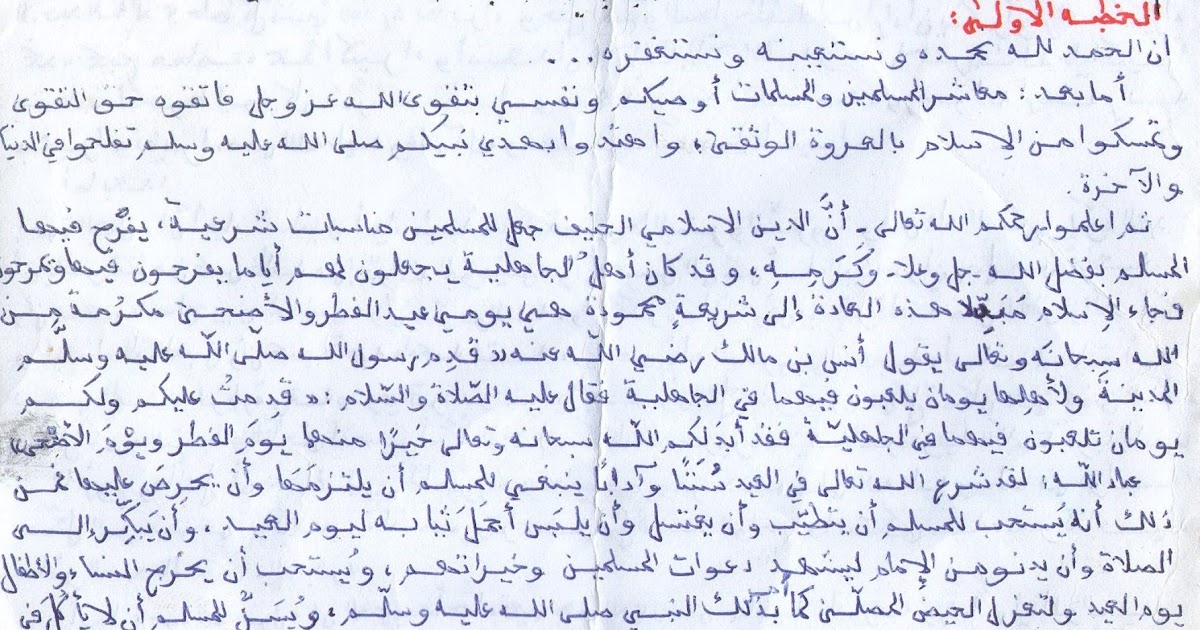 الخطبة الأولى:
ان الحمد لله نحمده ونستعينه ونستغفره...
أما بعد: معاشر المسلمين والمسلمات أوصيكم ونفسي بتقوى الله عز وجل فاتقوه حق التقوى
وتمسكوا من الإسلام بالعروة الوثقى، واهتدوا بهدي نبيكم صلى الله عليه وسلم تفلحوا في الدنيا
والآخرة.
ثم اعلموا رحمكم الله تعالى - أنَّ الدين الاسلامي الحنيف جعل للمسلمين مناسبات شرعية، يفرح فيها
المسلم بفضل الله جل وعلا وكَرَمِهِ، وقد كان أهلُ الجاهلية يجعلون لهم أياما يفرحون فيها ويمرحون
فجاء الإسلام مُبَدِّلا هذه العادة إلى شريعةٍ محمودة هي يومي عيد الفطر والأضحى مكرُمةً مِن
الله سبحانَه وتعالى يقول أنس بن مالك رضي اللّه عنه «قَدِم رسول الله صلّى اللّه عليه وسلَّم
المدينةَ ولأهلِها يومان يلعبون فيهما في الجاهلية فقال عليه الصّلاة والسّلام: «قَدِمتُ عليكم ولكم
يومان تلعبون فيهما في الجاهليّة فقد أبدَلكم اللّه سبحانه وتعالى خَيرًا منهما يومَ الفطر ويوْمَ الأضْحى»
عبادَ اللّه: لقد شرع الله تعالى في العيد سُنَنًا وآدابًا ينبغي للمسلم أن يلتزمَها وأن يحرِصَ عليها فمن
ذلك أنه يُستحب للمسلم أن يتطيّب وأن يغتسل وأن يلبَس أجمَلَ ثيابه ليوم العيد، وأن يُبَكِّر إلى
الصلاة وأن يدنو من الإمام ليشهد دعوات المسلمين وخيراتهم، ويُستحب أن يخرج النساء والأطفال
يوم العيد ولتعتزل الحيض المصلّى كما بذلك النبي صلى الله عليه وسلّم، ويُسَنُّ للمسلم أن لا يأكُل في